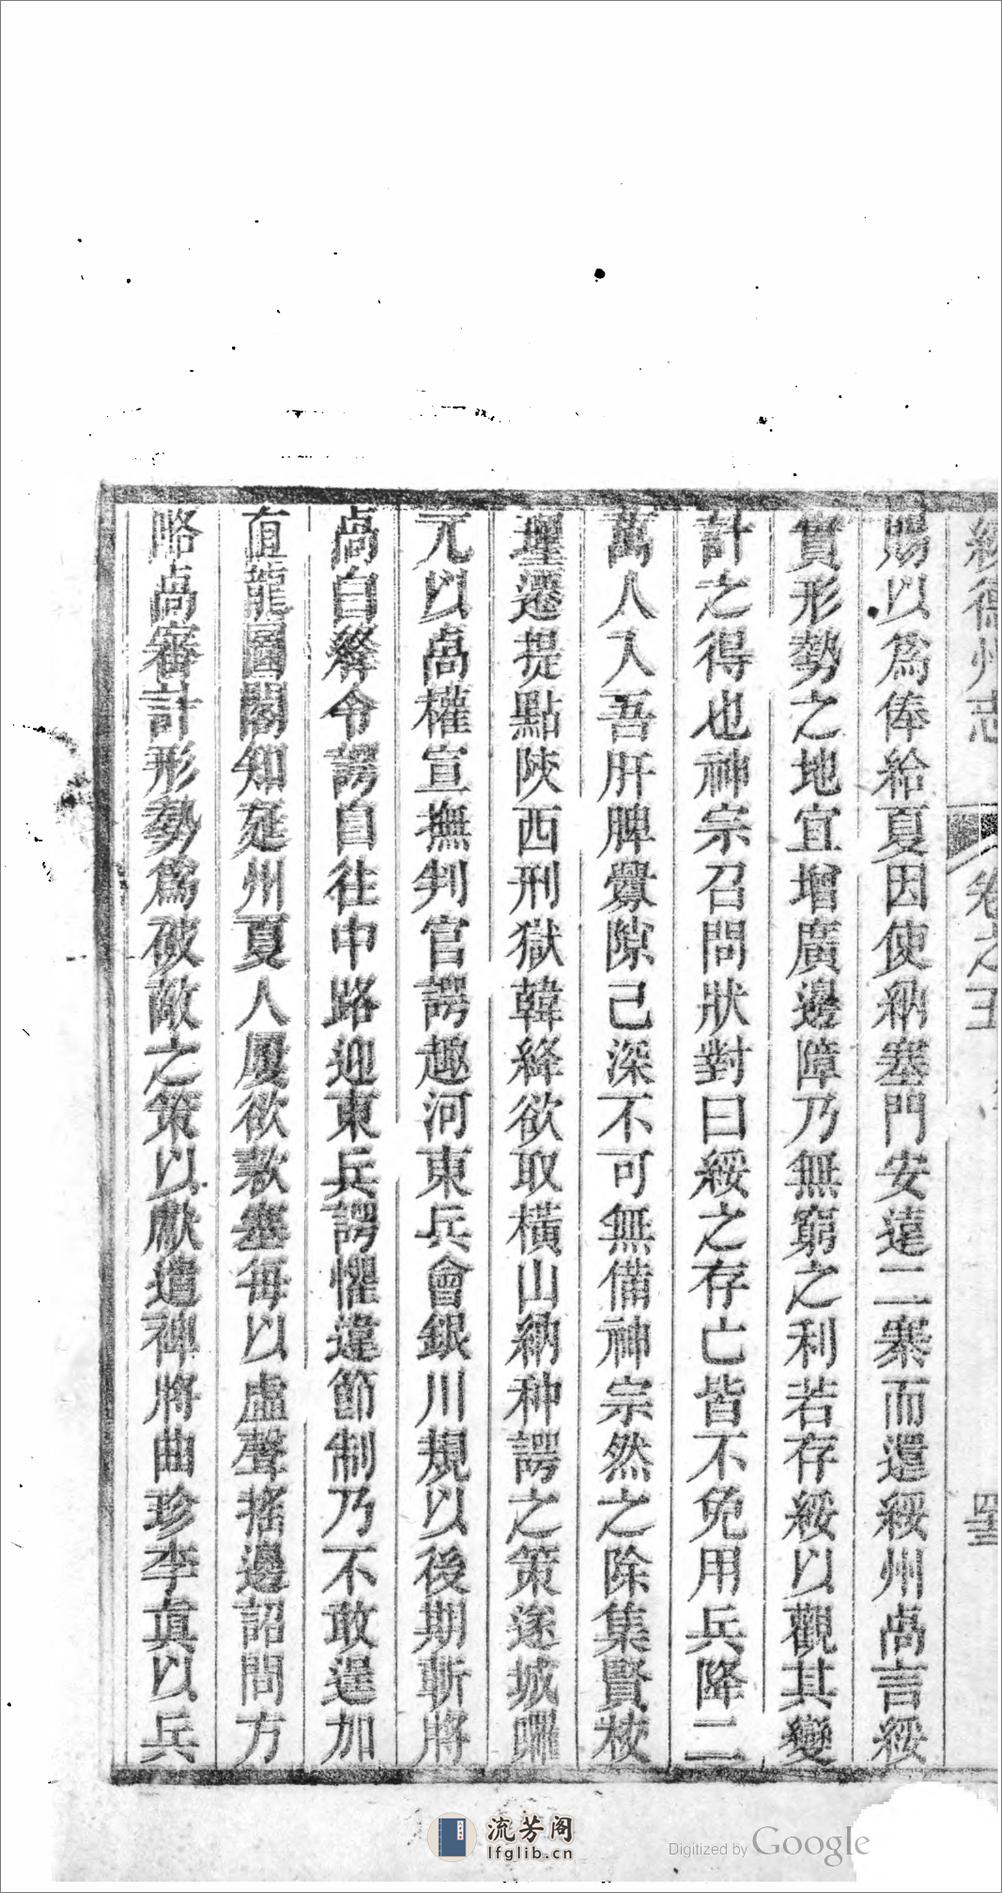 綏德州志 卷之五
賜以爲俸給夏因使納塞門安遠二寨而還綏州卨言綏
實形勢之地宜增廣邊障乃無窮之利若存綏以觀其變
計之得也神宗召問狀對曰綏之存亡皆不免用兵降二
萬人入吾肝脾釁隙己深不可無備神宗然之除集賢校
理遷提點陝西刑獄韓絳欲取橫山納种諤之策遂城囉
兀以卨權宣撫判官諤趣河東兵會銀川規以後期斬將
卨自繹令諤自往中路迎東兵諤懼違節制乃不敢逞加
直龍圖閣知延州夏人屢欲款塞每以虛聲搖邊詔問方
略卨審計形勢爲破敵之策以獻遣裨將曲珍李真以兵
流芳阁
lfglib.cn
Digitized by Google